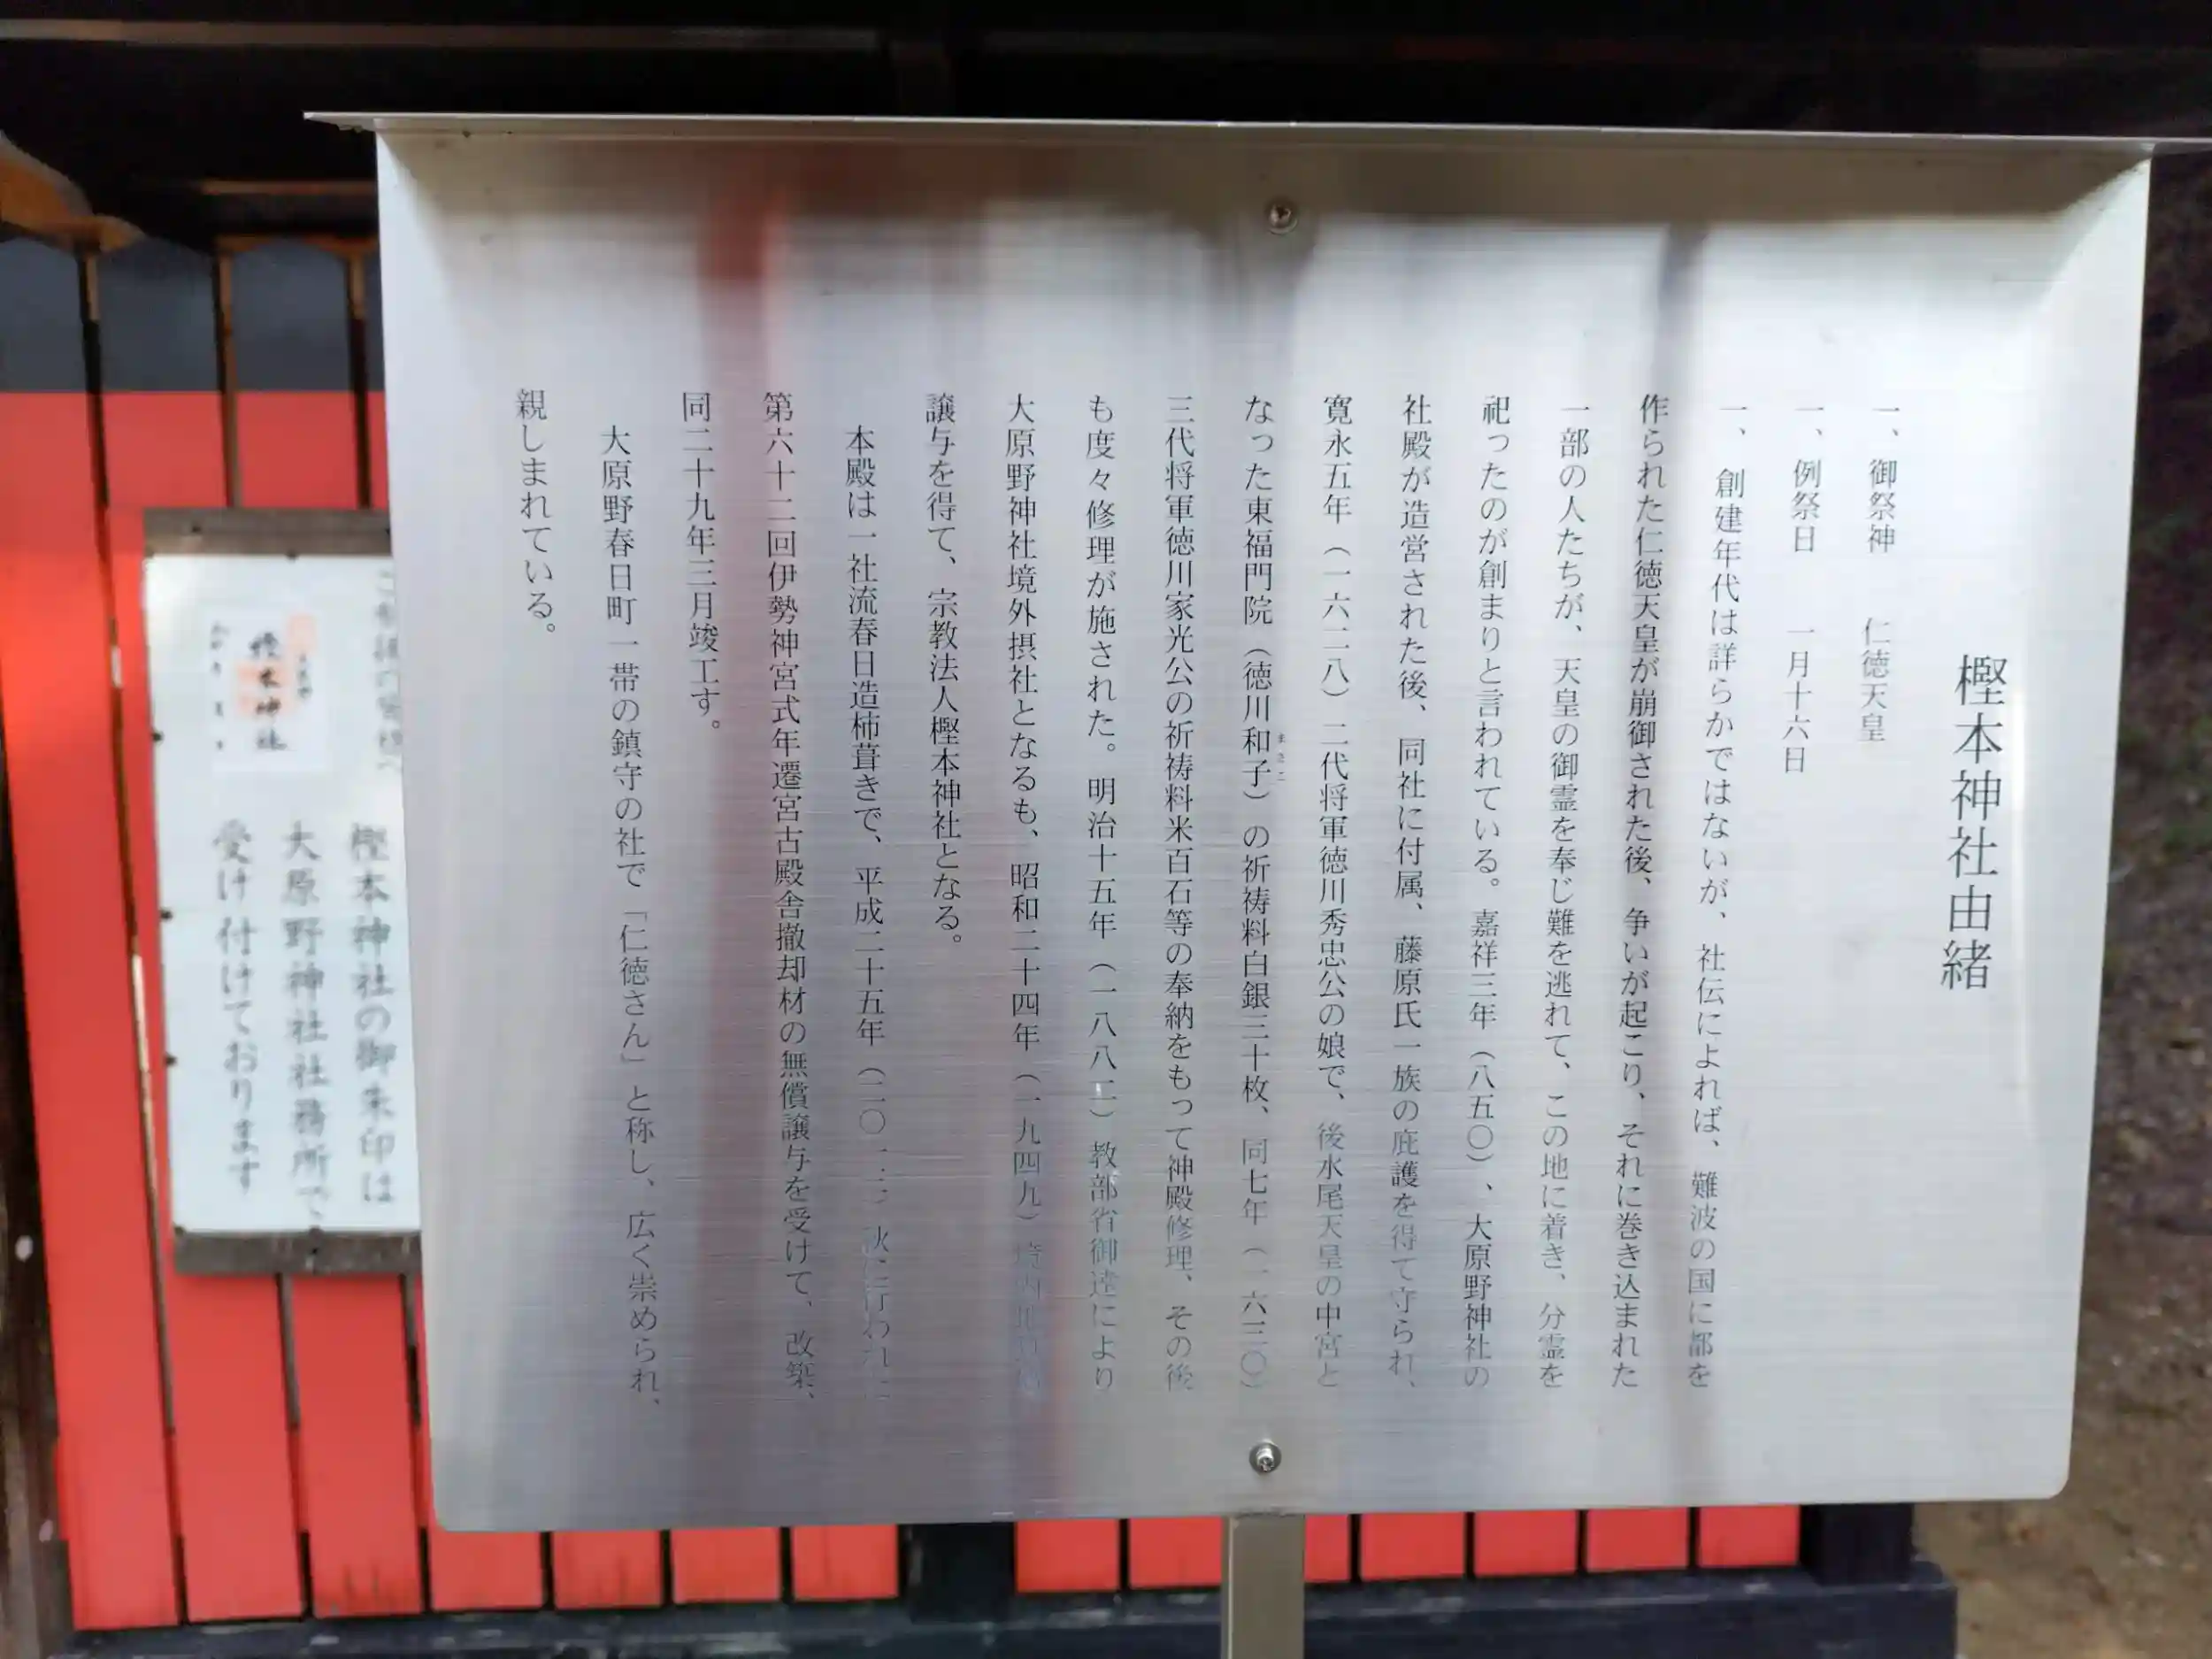 樫本神社由緒
一、御祭神　仁徳天皇
一、例祭日　一月十六日
一、創建年代は詳らかではないが、社伝によれば、難波の国に都を
作られた仁徳天皇が崩御された後、争いが起こり、それに巻き込まれた
一部の人たちが、天皇の御霊を奉じ難を逃れて、この地に着き、分霊を
祀ったのが創まりと言われている。嘉祥三年（八五〇）、大原野神社の
社殿が造営された後、同社に付属、藤原氏一族の庇護を得て守られ、
寛永五年（一六二八）二代将軍徳川秀忠公の娘で、後水尾天皇の中宮と
なった東福門院（徳川和子）の祈祷料白銀三十枚、同七年（一六三〇）
三代将軍徳川家光公の祈祷料米百石等の奉納をもって神殿修理、その後
も度々修理が施された。明治十五年（一八八二）教部省御達により
大原野神社境外摂社となるも、昭和二十四年（一九四九）
譲与を得て、宗教法人樫本神社となる。
本殿は一社流春日造柿葺きで、平成二十五年（二〇一三）秋に行われた
第六十二回伊勢神宮式年遷宮古殿舎撤却材の無償譲与を受けて、改築、
同二十九年三月竣工す。
大原野春日町一帯の鎮守の社で「仁徳さん」と称し、広く崇められ、
親しまれている。
樫本神社の御朱印は
大原野神社社務所で、
受け付けております
樫本神社